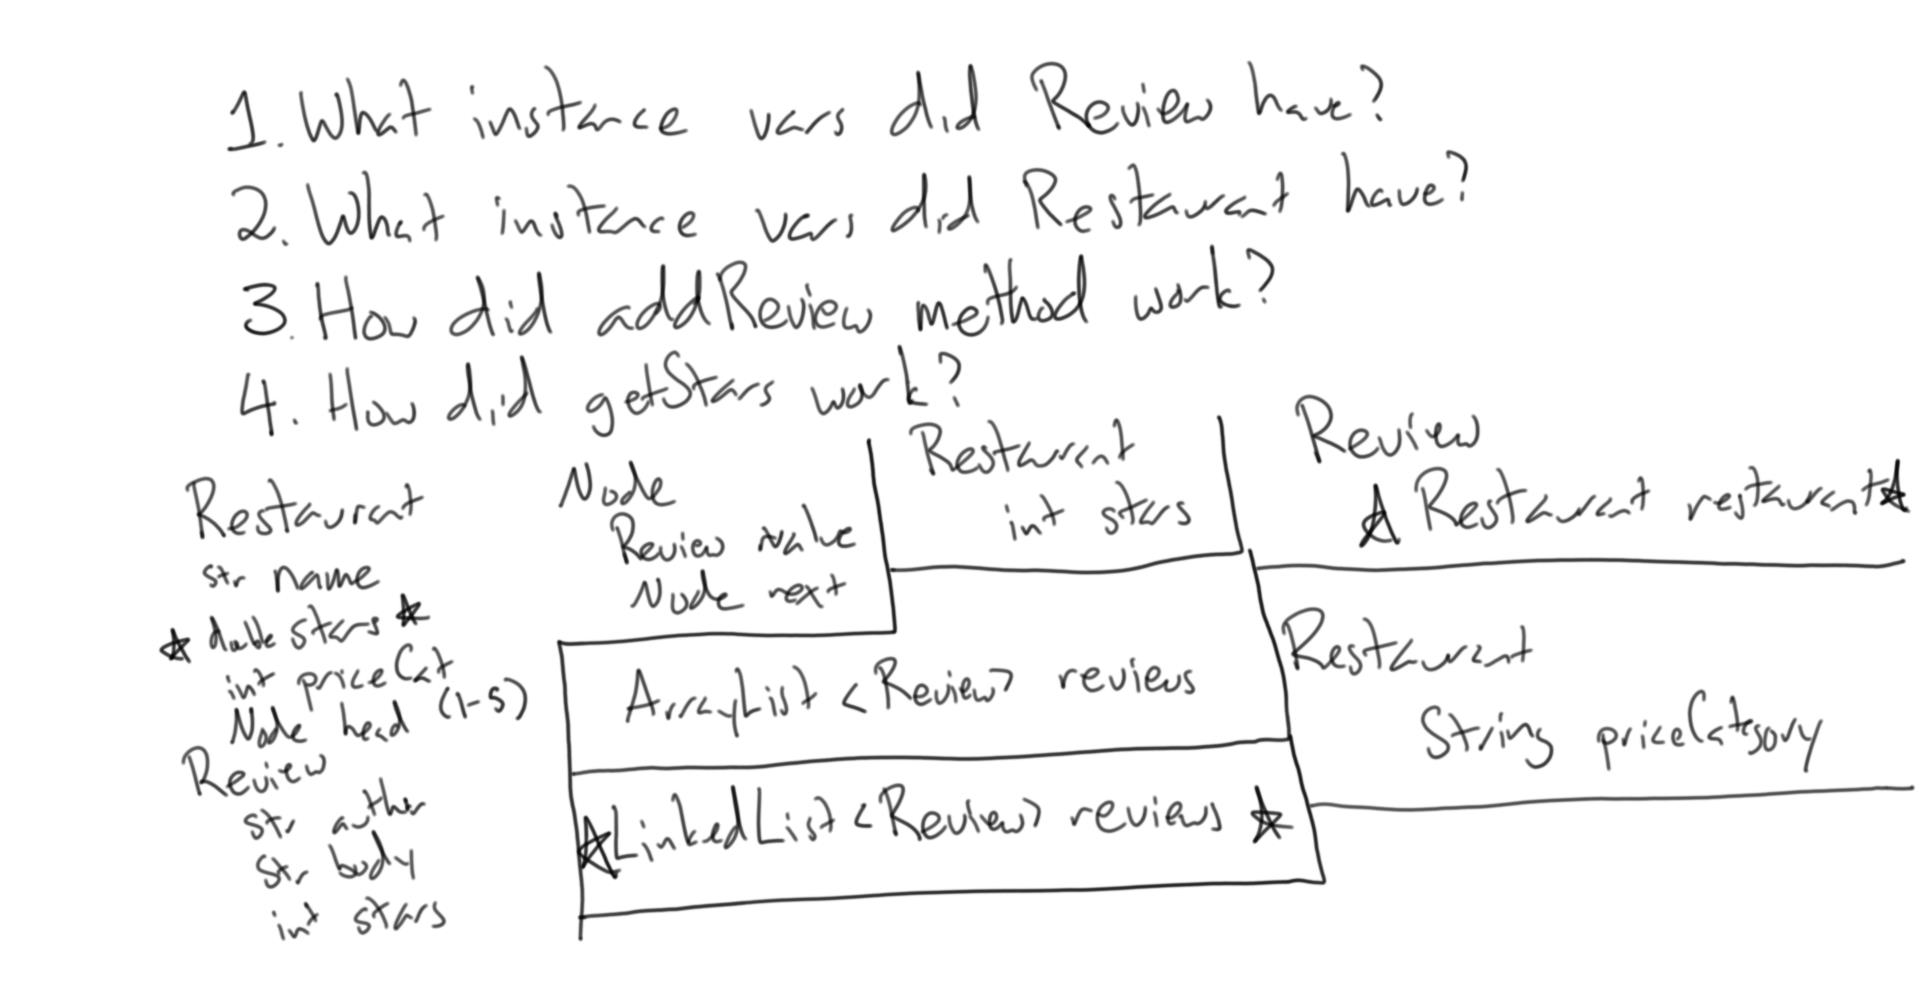 1. What instance vars did Review have?
2. What instance vars did Restaurant have?
3. How did addReview method work?
4. How did getStars work?
Restaurant
str name
★ double stars ★
int priceCat
(1-5)
Node head
Review
str author
str body
int stars
Node
Review value
Node next
Restaurant
int stars
Review
★ Restaurant restaurant ★
ArrayList <Review> reviews
★ LinkedList <Review> reviews ★
Restaurant
String priceCategory